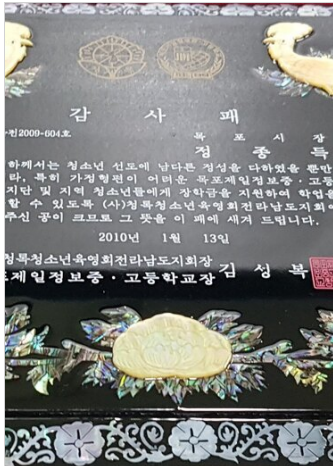 감 사 패
2009-604호
목 포 시 장
정 종 득
하께서는 청소년 선도에 남다른 정성을 다하였을 뿐만
라, 특히 가정형편이 어려운 목포제일정보중·고등
지단 및 지역 청소년들에게 장학금을 지원하여 학업을
할 수 있도록 (사)청록청소년육영회전라남도지회에
주신 공이 크므로 그 뜻을 이 패에 새겨 드립니다.
2010년 1월 13일
청록청소년육영회전라남도지회장
포제일정보중·고등학교장 김 성 복